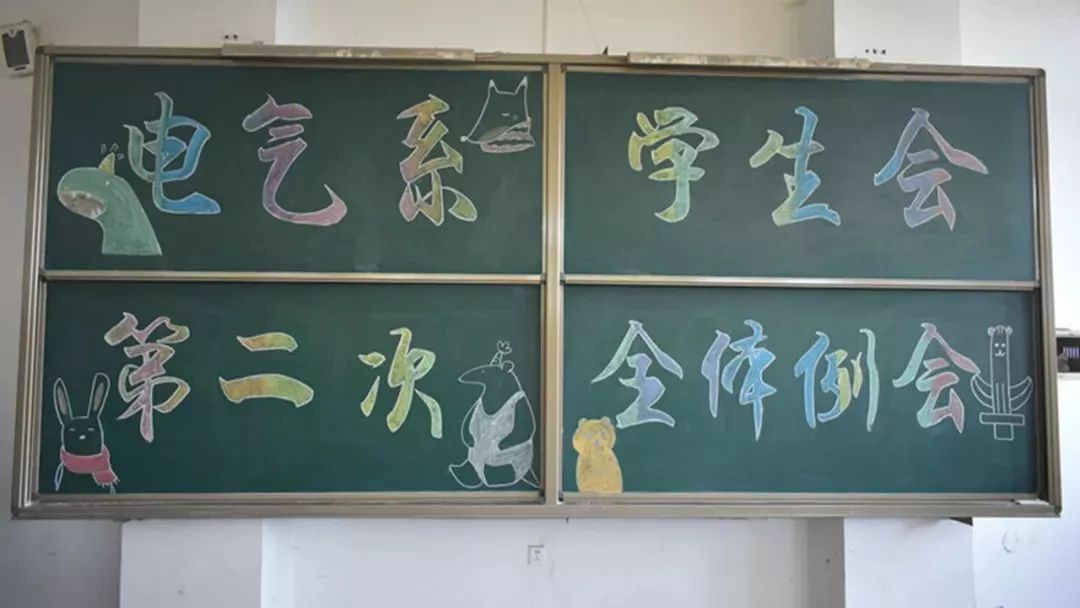 电气系学生会
第二次全体例会